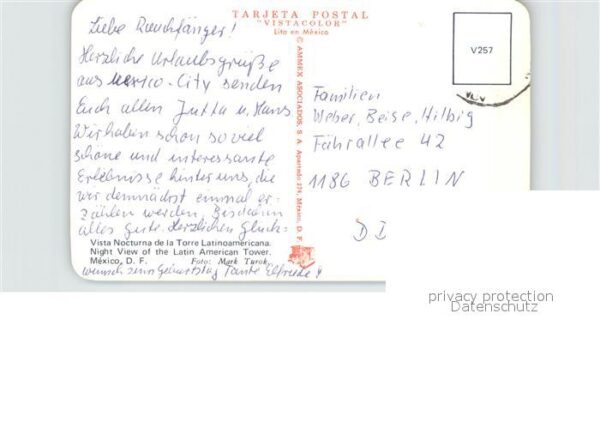 TARJETA POSTAL
"VISTACOLOR"
Lito en México
Liebe Rauchfänger!
Herzliche Urlaubsgrüße
aus Mexico-City senden
Euch allen Jutta u. Hans
Wir haben schon so viel
schöne und interessante
Erlebnisse hinter uns, die
wir demnächst einmal er-
zählen werden. Bis dann
alles gute. Herzlichen Glück-
Vista Nocturna de la Torre Latinoamericana.
Night View of the Latin American Tower.
México, D. F. Foto: Mark Turok
wunsch zum Geburtstag Tante Elfriede
© AMMEX ASOCIADOS, S. A. Apartado 274, México, D. F.
V257
Familien
Weber, Beise, Hilbig
Fährallee 42
1186 BERLIN
privacy protection
Datenschutz